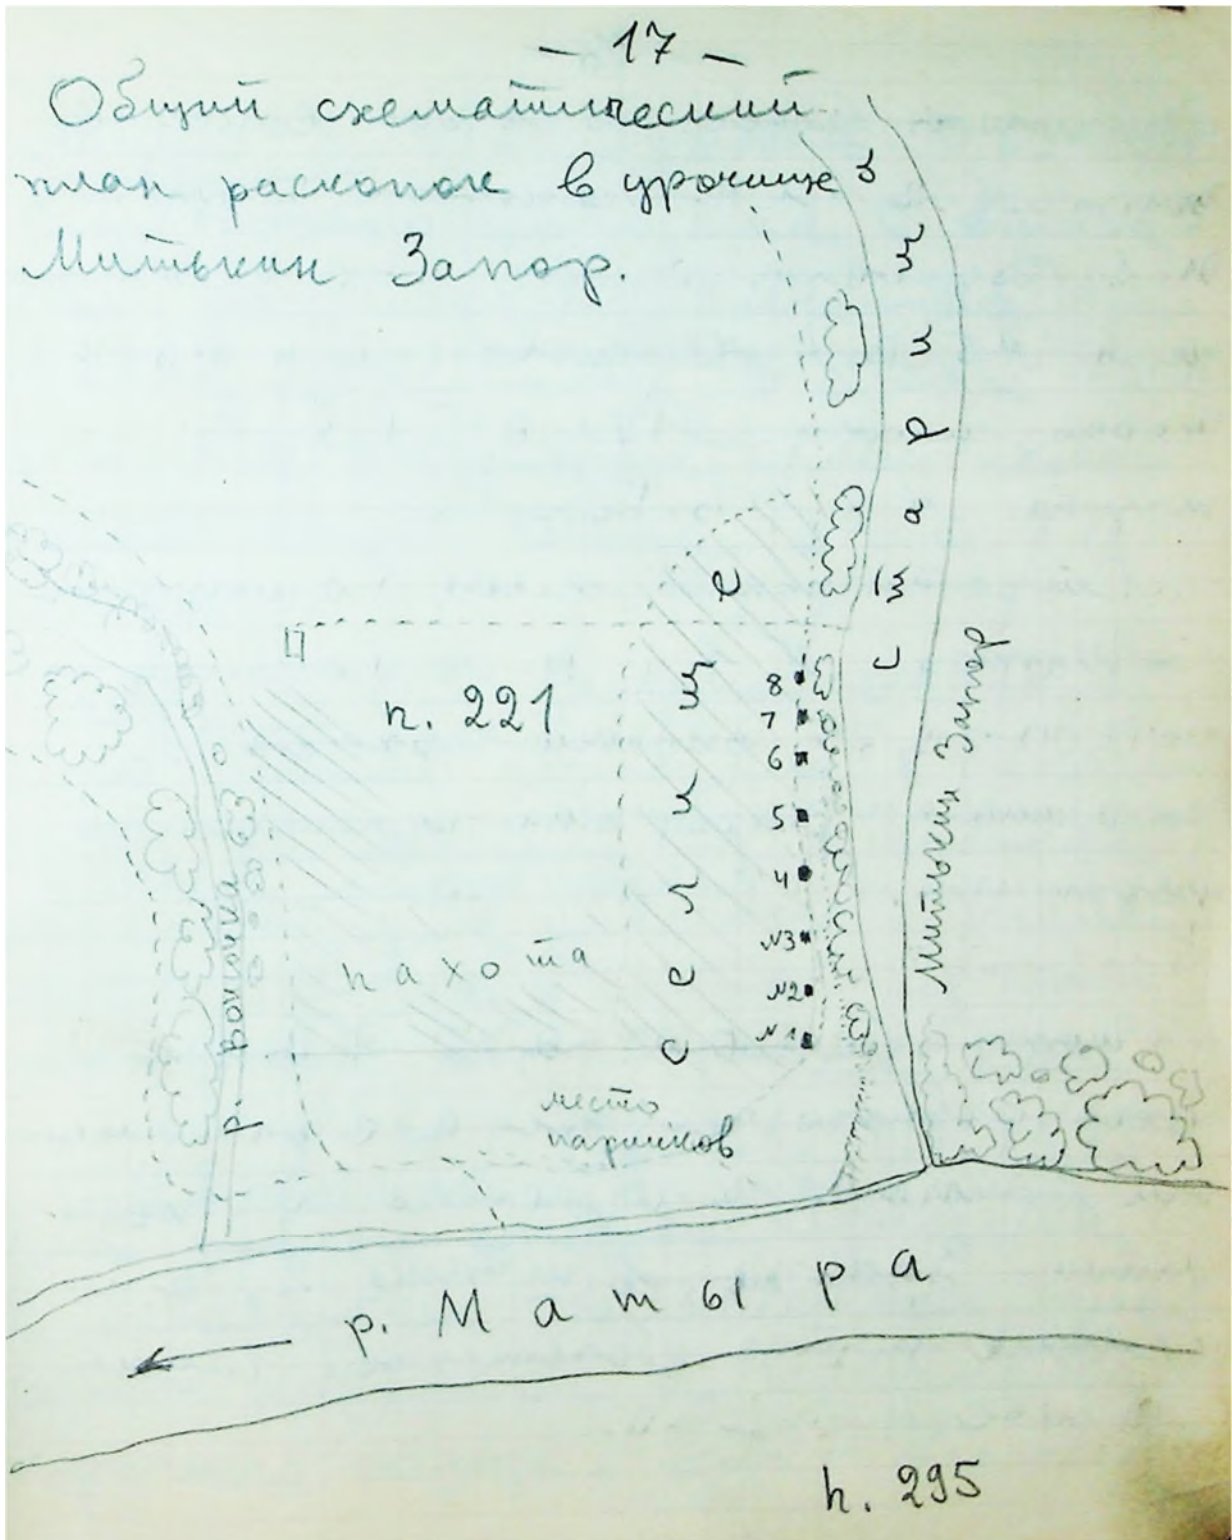 – 17 –
Общий схематический
план раскопок в урочище
Митькин Запор.
Старица
Митькин Запор
селище
п. 221
8
7
6
5
4
№3
№2
№1
пахота
место
парников
р. Матыра
п. 295